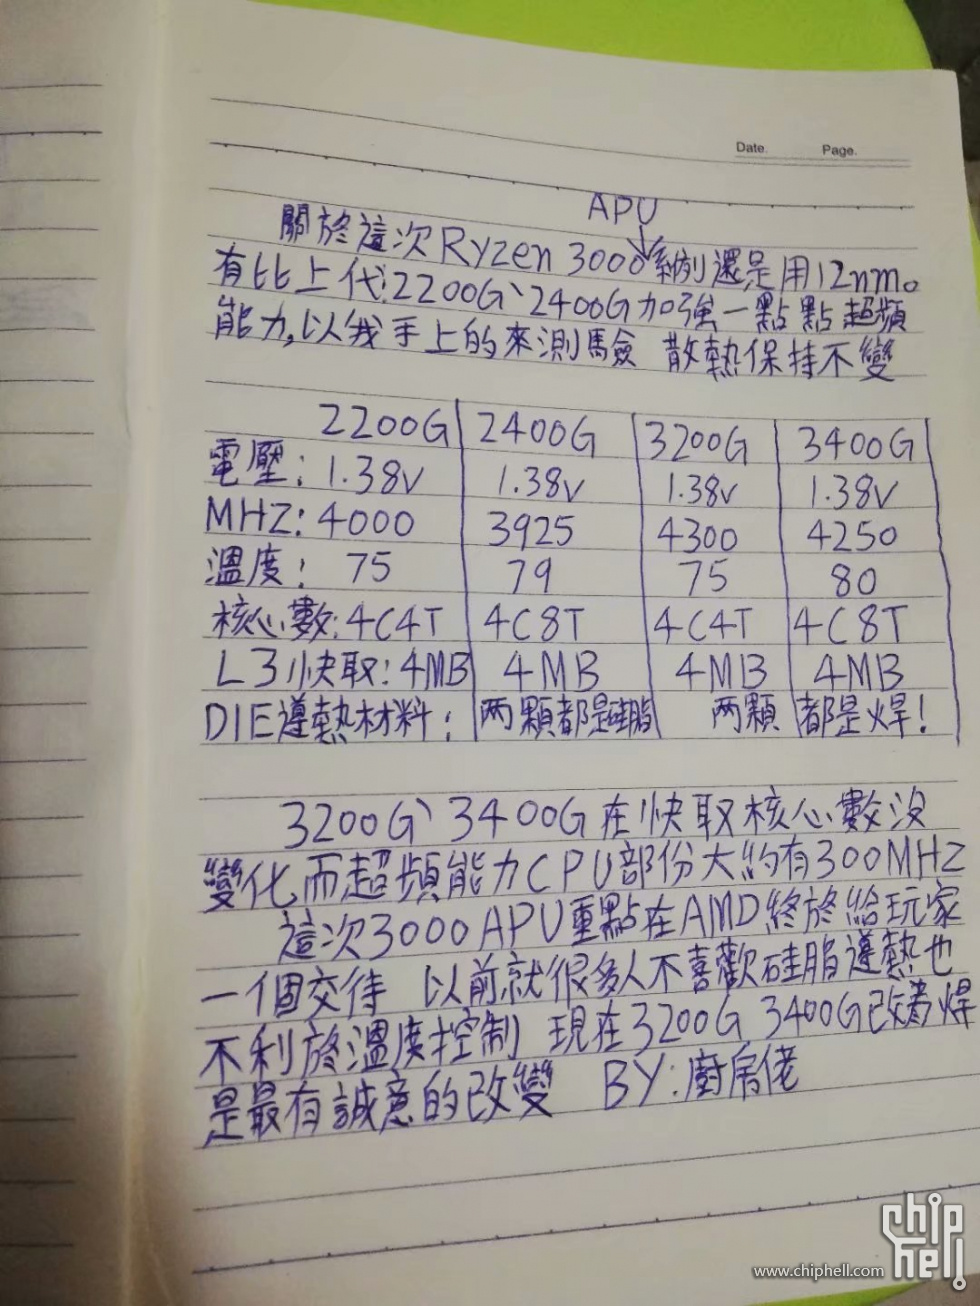 Date.    Page.
APU
關於這次Ryzen 3000系列還是用12nm。
有比上代2200G、2400G加強一點點超頻
能力,以我手上的來測驗 散熱保持不變
2200G 2400G 3200G 3400G
電壓: 1.38v 1.38v 1.38v 1.38v
MHZ: 4000 3925 4300 4250
溫度: 75 79 75 80
核心數: 4C4T 4C8T 4C4T 4C8T
L3快取: 4MB 4MB 4MB 4MB
DIE導熱材料: 两顆都是硅脂 两顆都是焊!
3200G、3400G在快取核心數沒
變化而超頻能力CPU部份大約有300MHZ
這次3000APU重點在AMD終於給玩家
一個交待 以前就很多人不喜歡硅脂導熱也
不利於溫度控制 現在3200G 3400G改為焊
是最有誠意的改變 BY:廚房佬
chip hell
www.chiphell.com